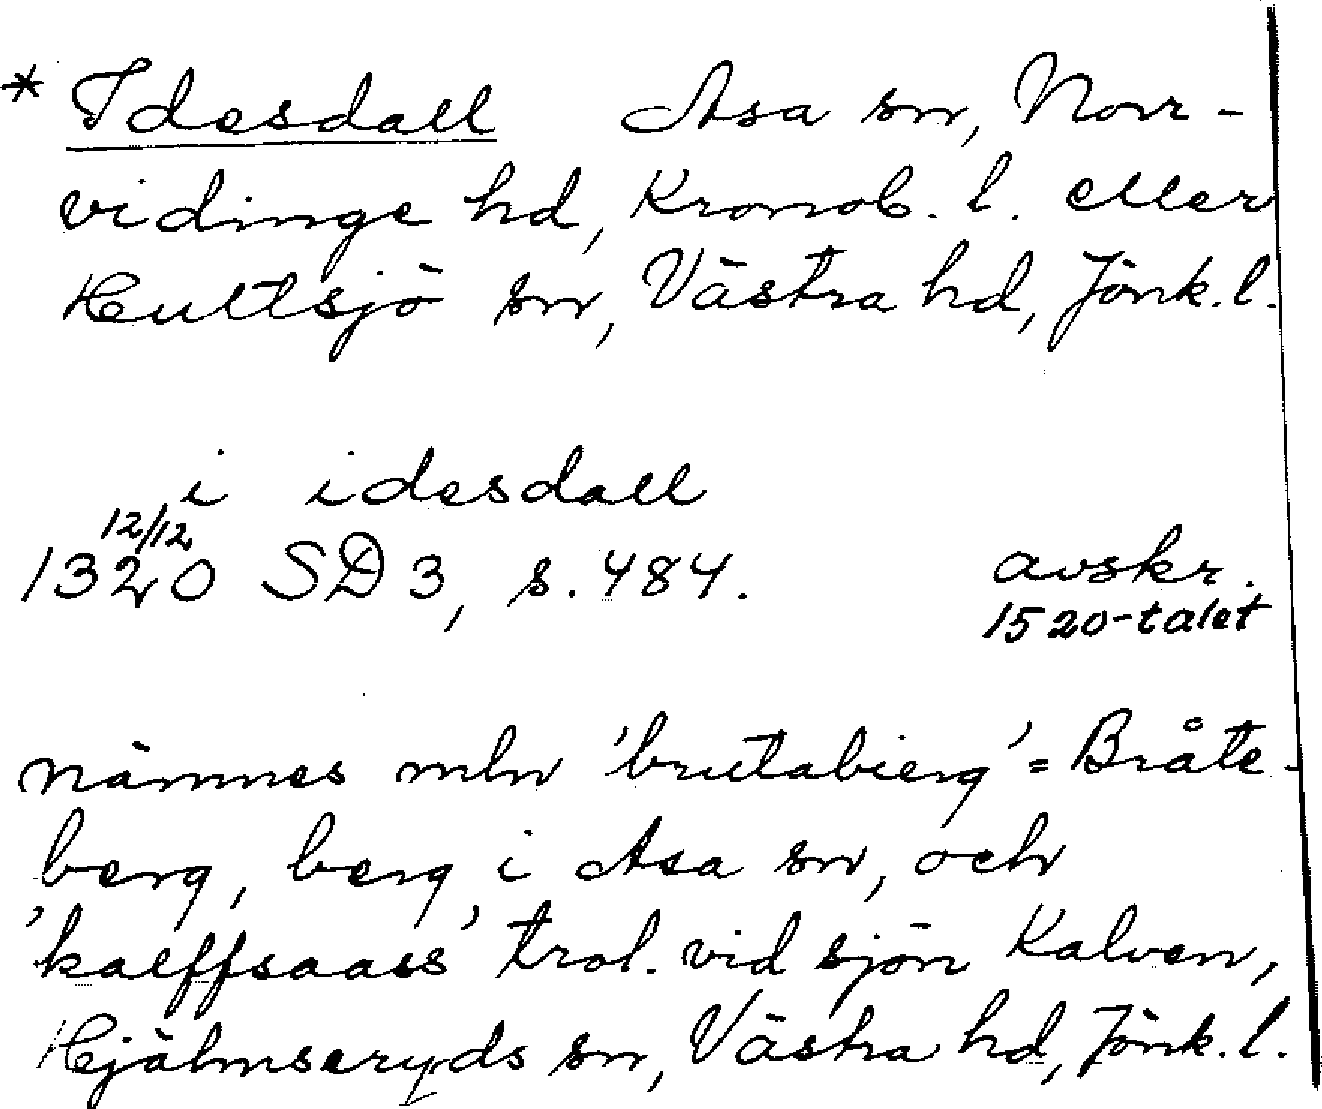 * Idesdall Asa sn, Norr-
vidinge hd, Kronob. l. eller
Hultsjö sn, Västra hd, Jönk. l.
i idesdall
12/12
1320 SD 3, s. 484. avskr.
1520-talet
nämnes mln 'brutabierg' = Bråte-
berg, berg i Asa sn, och
'kalffsaass' trol. vid sjön Kalven,
Hjälmseryds sn, Västra hd, Jönk. l.